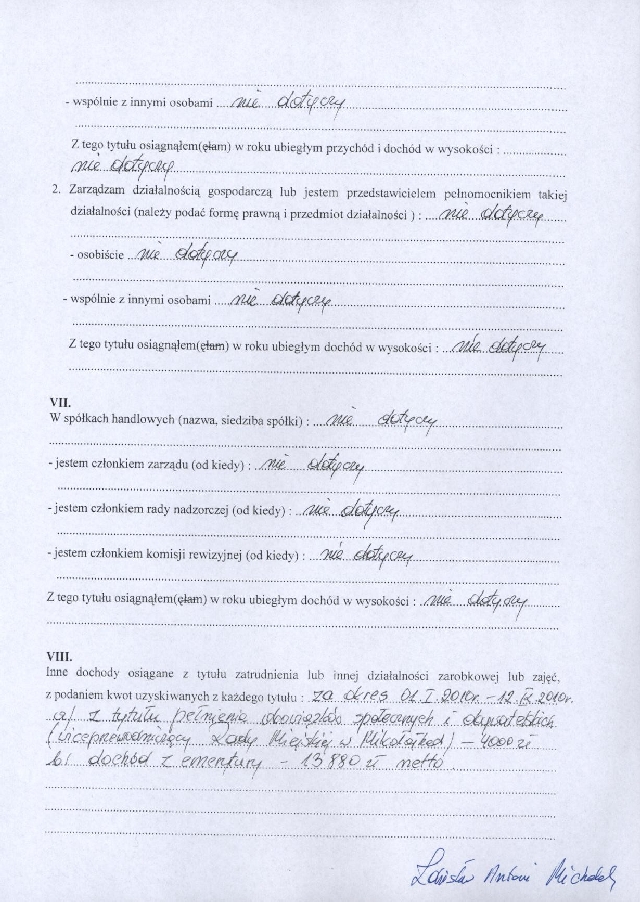 - wspólnie z innymi osobami ... nie dotyczy
Z tego tytułu osiągnąłem(ęłam) w roku ubiegłym przychód i dochód w wysokości : ...
nie dotyczy
2. Zarządzam działalnością gospodarczą lub jestem przedstawicielem pełnomocnikiem takiej
działalności (należy podać formę prawną i przedmiot działalności ) : ... nie dotyczy
- osobiście ... nie dotyczy
- wspólnie z innymi osobami ... nie dotyczy
Z tego tytułu osiągnąłem(ęłam) w roku ubiegłym dochód w wysokości : ... nie dotyczy
VII.
W spółkach handlowych (nazwa, siedziba spółki) : ... nie dotyczy
- jestem członkiem zarządu (od kiedy) : ... nie dotyczy
- jestem członkiem rady nadzorczej (od kiedy) : ... nie dotyczy
- jestem członkiem komisji rewizyjnej (od kiedy) : ... nie dotyczy
Z tego tytułu osiągnąłem(ęłam) w roku ubiegłym dochód w wysokości : ... nie dotyczy
VIII.
Inne dochody osiągane z tytułu zatrudnienia lub innej działalności zarobkowej lub zajęć,
z podaniem kwot uzyskiwanych z każdego tytułu : za okres 01.I.2010r. - 12.2010r.
a) z tytułu pełnienia obowiązków społecznych i obywatelskich
(wiceprzewodniczący Rady Miejskiej w Mikołajkach) - 4000 zł
b) dochód z emerytury - 13 880 zł netto
Antoni